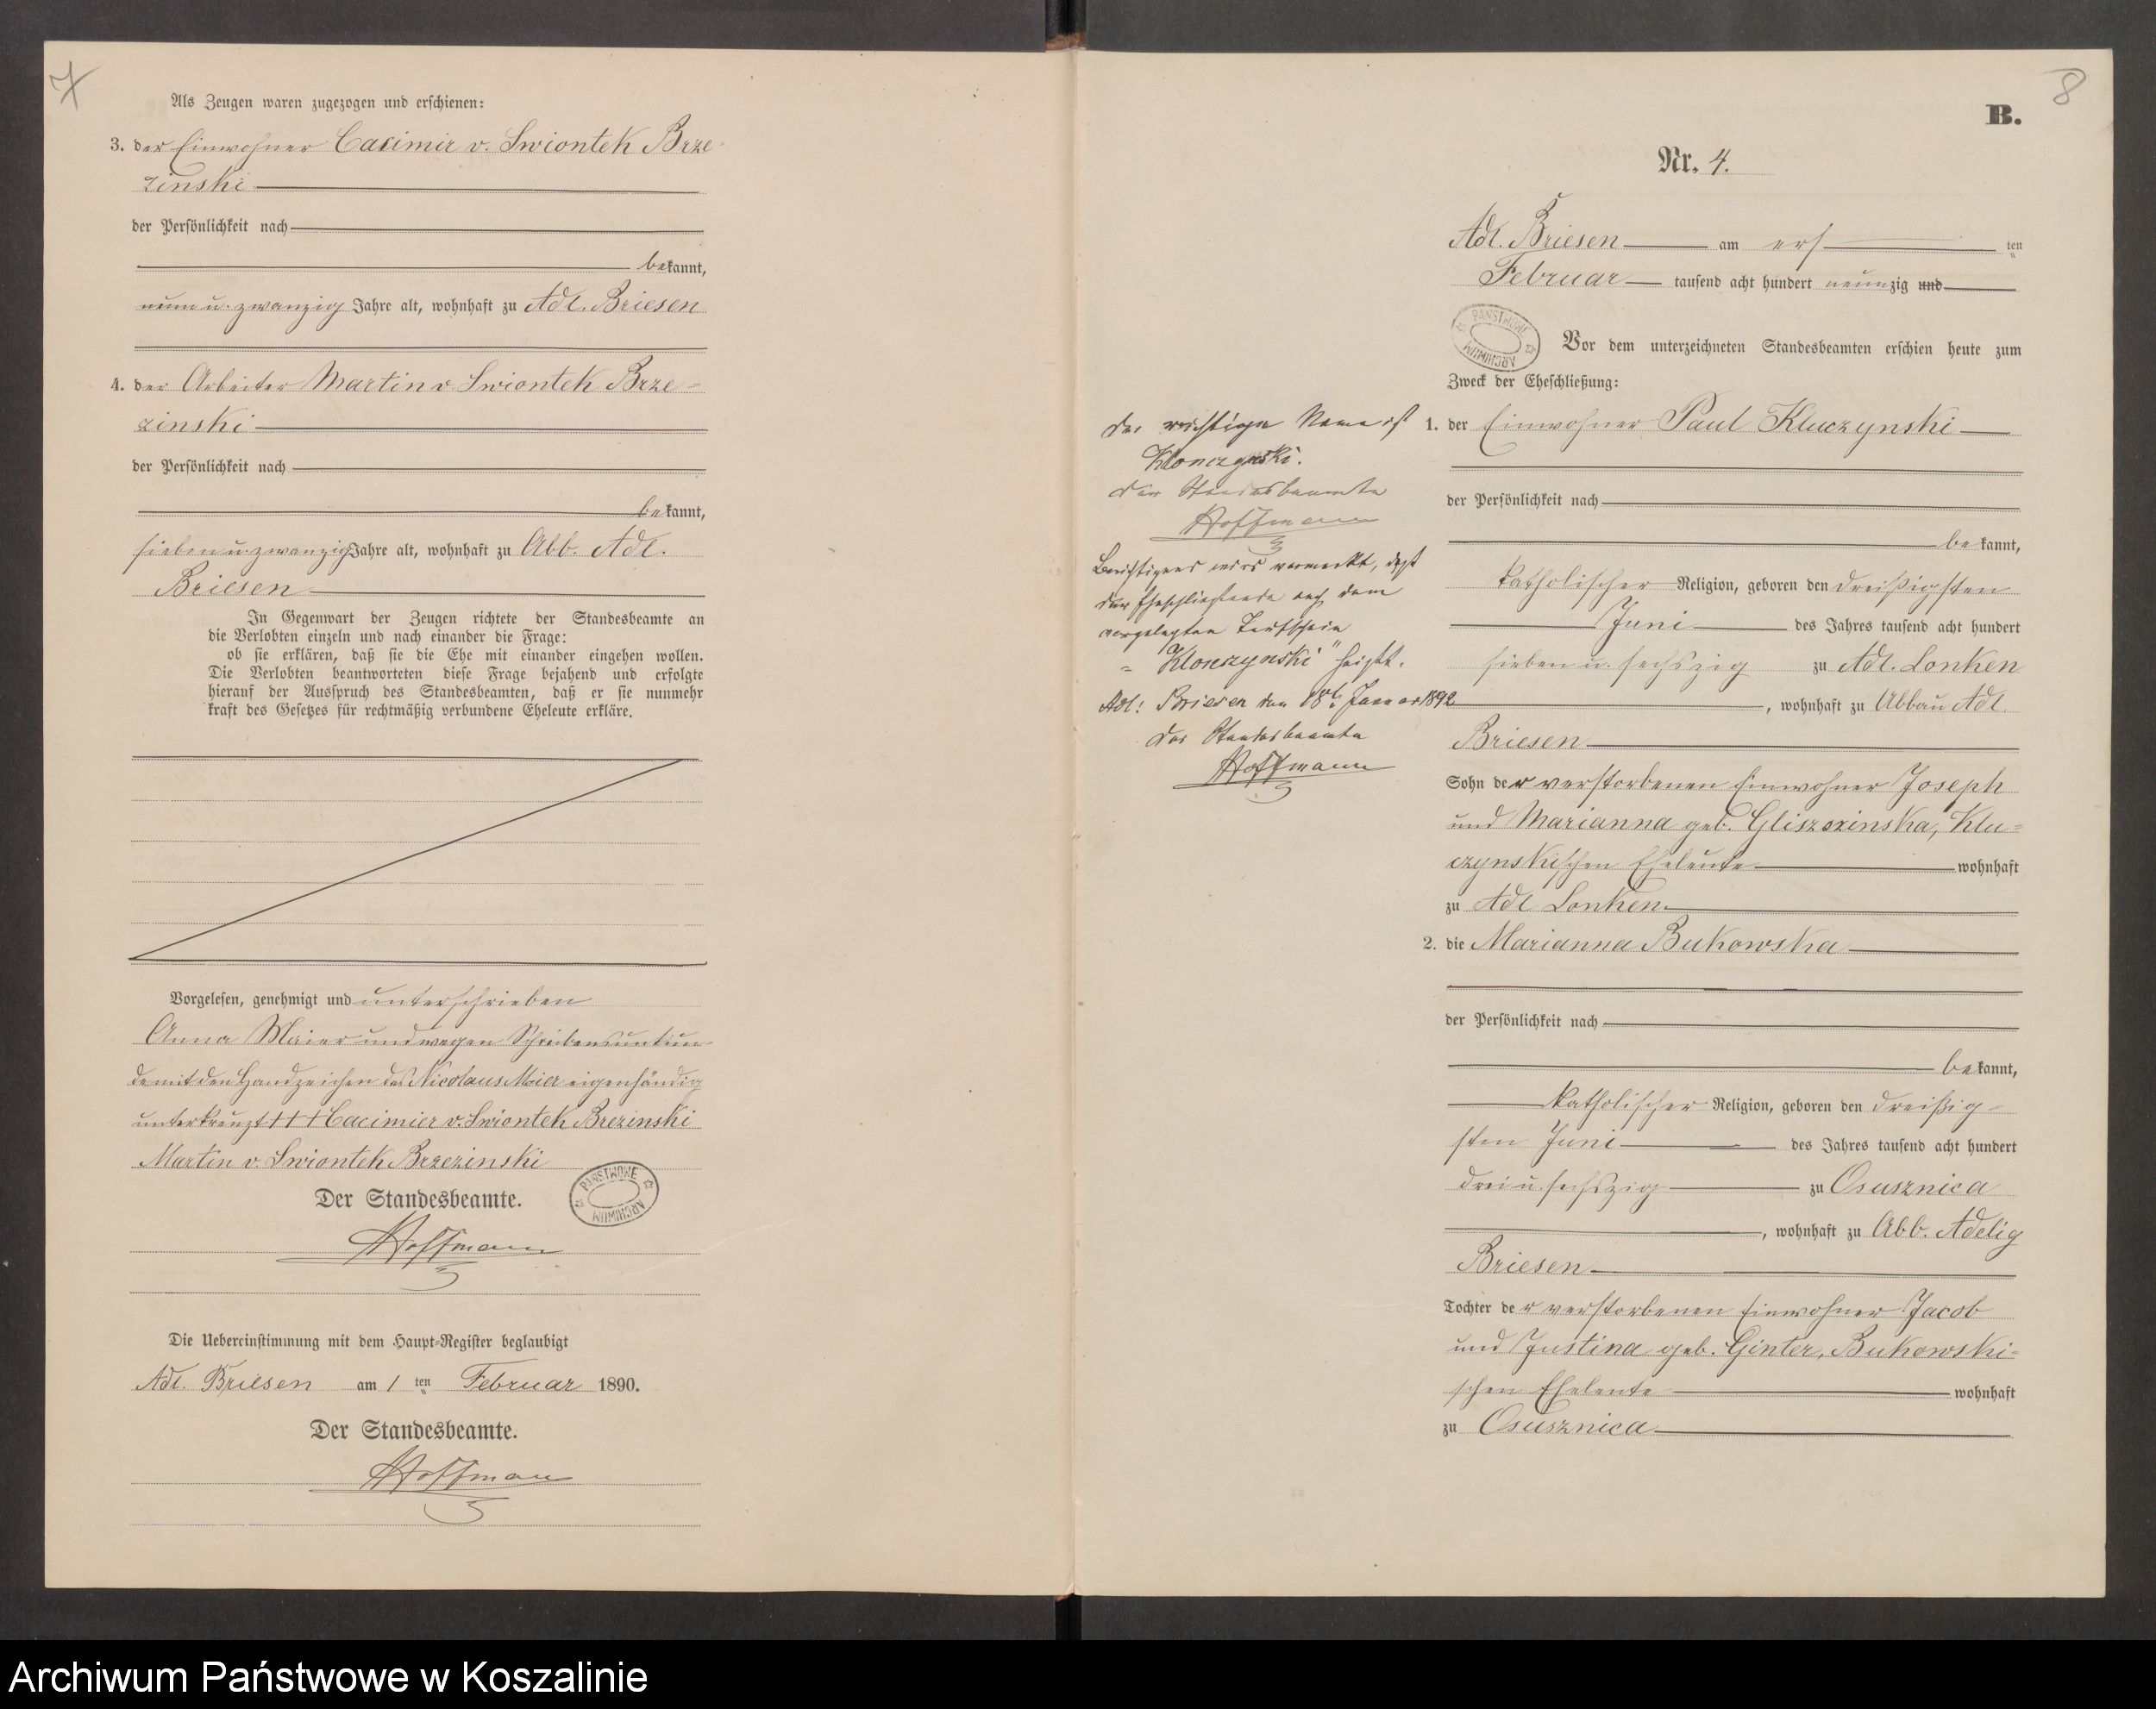 7
Als Zeugen waren zugezogen und erschienen:
3. der Einwohner Casimir v. Swiontek Brze
zinski
der Persönlichkeit nach
bekannt,
neun u. zwanzig Jahre alt, wohnhaft zu Adl. Briesen
4. der Arbeiter Martin v Swiontek Brze-
zinski
der Persönlichkeit nach
bekannt,
sieben u. zwanzig Jahre alt, wohnhaft zu Abb. Adl.
Briesen
In Gegenwart der Zeugen richtete der Standesbeamte an
die Verlobten einzeln und nach einander die Frage:
ob sie erklären, daß sie die Ehe mit einander eingehen wollen.
Die Verlobten beantworteten diese Frage bejahend und erfolgte
hierauf der Ausspruch des Standesbeamten, daß er sie nunmehr
kraft des Gesetzes für rechtmäßig verbundene Eheleute erkläre.
Vorgelesen, genehmigt und unterschrieben
Anna Maier und wegen Schreibensunkun-
de mit den Handzeichen des Nicolaus Maier eigenhändig
unterkreuzt +++ Cacimier v. Swiontek Brezinski
Martin v Swiontek Brzezinski
Der Standesbeamte.
PAŃSTWOWE ARCHIWUM
Hoffmann
Die Uebereinstimmung mit dem Haupt-Register beglaubigt
Adl. Briesen am 1 ten Februar 1890.
Der Standesbeamte.
Hoffmann
8
B.
Nr. 4.
Adl. Briesen am ers ten
Februar tausend acht hundert neunzig und
PAŃSTWOWE ARCHIWUM
Vor dem unterzeichneten Standesbeamten erschien heute zum
Zweck der Eheschließung:
1. der Einwohner Paul Kluczynski
der Persönlichkeit nach
bekannt,
katholischer Religion, geboren den dreißigsten
Juni des Jahres tausend acht hundert
sieben u. sechszig zu Adl. Lonken
, wohnhaft zu Abbau Adl.
Briesen
Sohn der verstorbenen Einwohner Joseph
und Marianna geb. Gliszczinska, Klu-
czynskischen Eheleute wohnhaft
zu Adl Lonken
2. die Marianna Bukowska
der Persönlichkeit nach
bekannt,
katholischer Religion, geboren den dreißig-
sten Juni des Jahres tausend acht hundert
drei u. sechszig zu Osusznica
, wohnhaft zu Abb. Adelig
Briesen
Tochter der verstorbenen Einwohner Jacob
und Justina geb. Ginter, Bukowski-
schen Eheleute wohnhaft
zu Osusznica
Der richtige Name ist
Klonczynski.
Der Standesbeamte
Hoffmann
Berichtigend wird vermerkt, daß
der Eheschließende nach dem
vorgelegten Taufschein
"Klonczynski" heißt.
Adl: Briesen den 18t Januar 1892
Der Standesbeamte
Hoffmann
Archiwum Państwowe w Koszalinie